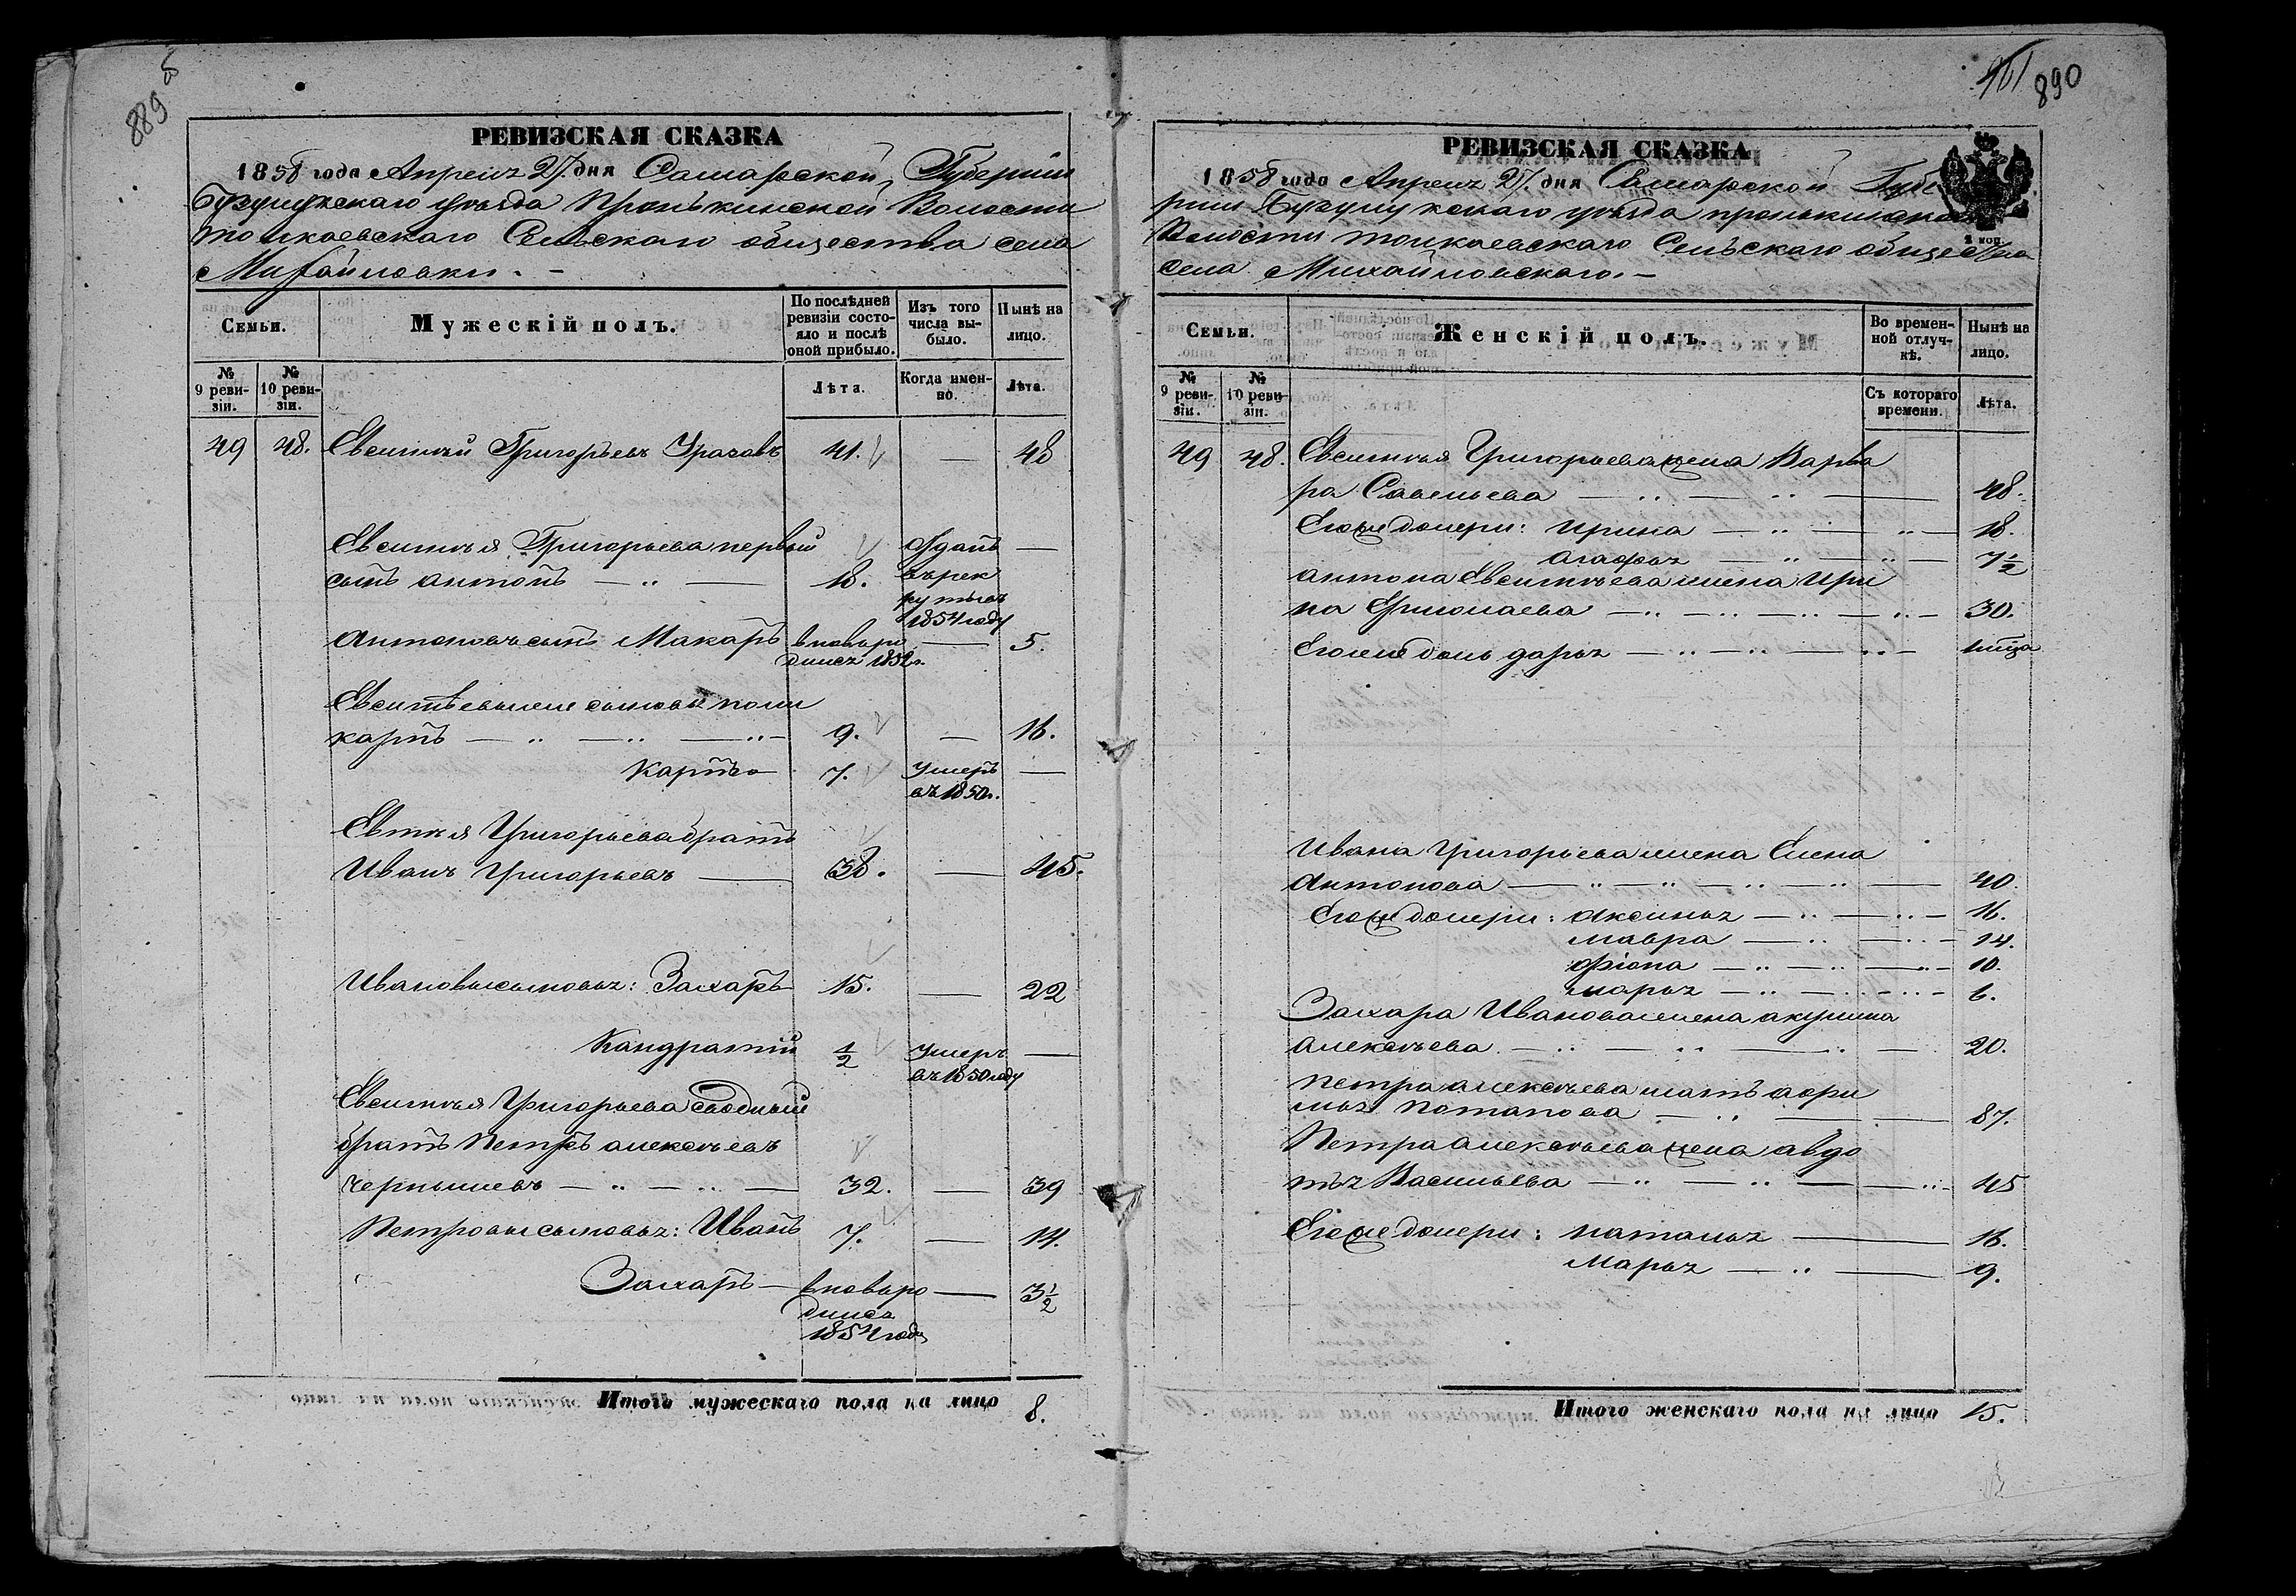 889 б
РЕВИЗСКАЯ СКАЗКА
1858 года Апреля 27 дня Самарской Губернии
Бузулукскаго уѣзда Пронькинской Волости
толкаевскаго Сельскаго общества села
Михайловки. -
Семьи.
Мужескій полъ.
По послѣдней ревизіи состояло и послѣ оной прибыло.
Изъ того числа выбыло.
Нынѣ на лицо.
№ 9 ревизіи.
№ 10 ревизіи.
Лѣта.
Когда именно.
Лѣта.
49 48. Евсигнѣй Григорьевъ 41. — 48
Евсигнѣя Григорьева первый Отданъ —
сынъ антонъ — 18. въ рек
рутывъ
1854 году
антоновъ сынъ Макаръ вновьро — 5.
дился 1852г.
сыновья поли
карпъ — 9. — 16.
Карпъ 7. умеръ —
въ 1850г.
Григорьева братъ
Иванъ Григорьевъ — 38. — 45.
Ивановы сыновья: Захаръ 15. — 22
Кандратій 1/2 умеръ —
въ 1850 году
Евсигнѣя Григорьева сводный
братъ Петръ алексѣевъ
чернышевъ — 32. — 39
Петровы сыновья: Иванъ 7. — 14.
Захаръ — вновьро — 3 1/2
дился
1854 года
Итого мужескаго пола на лицо 8.
890
РЕВИЗСКАЯ СКАЗКА
1858 года Апреля 27. дня Самарской Губе
рнии Бузулукскаго уѣзда пронькинской
Волости толкаевскаго Сельскаго общества
села Михайловскаго. -
2 коп.
Семьи.
Женскій полъ.
Во временной отлучкѣ.
Нынѣ на лицо.
№ 9 ревизіи.
№ 10 ревизіи.
Съ котораго времени.
Лѣта.
49 48. Евсигнѣя Григорьева жена Варва
ра Савельева — 48.
Егоже дочери: ирина — 18.
агафья — 7 1/2
антона Евсигнѣева жена ири
на — 30.
Егоже дочь дарья —
Ивана Григорьева жена Елена
антонова — 40.
Егоже дочери: аксинья — 16.
мавра — 14.
фіона — 10.
марья — 6.
Захара Иванова жена акулина
алексѣева — 20.
Петра алексѣева мать
Потапова — 87.
Петра алексѣева жена авдо
тья Васильева — 45
Егоже дочери: наталья — 16.
Марья — 9.
Итого женскаго пола на лицо 15.